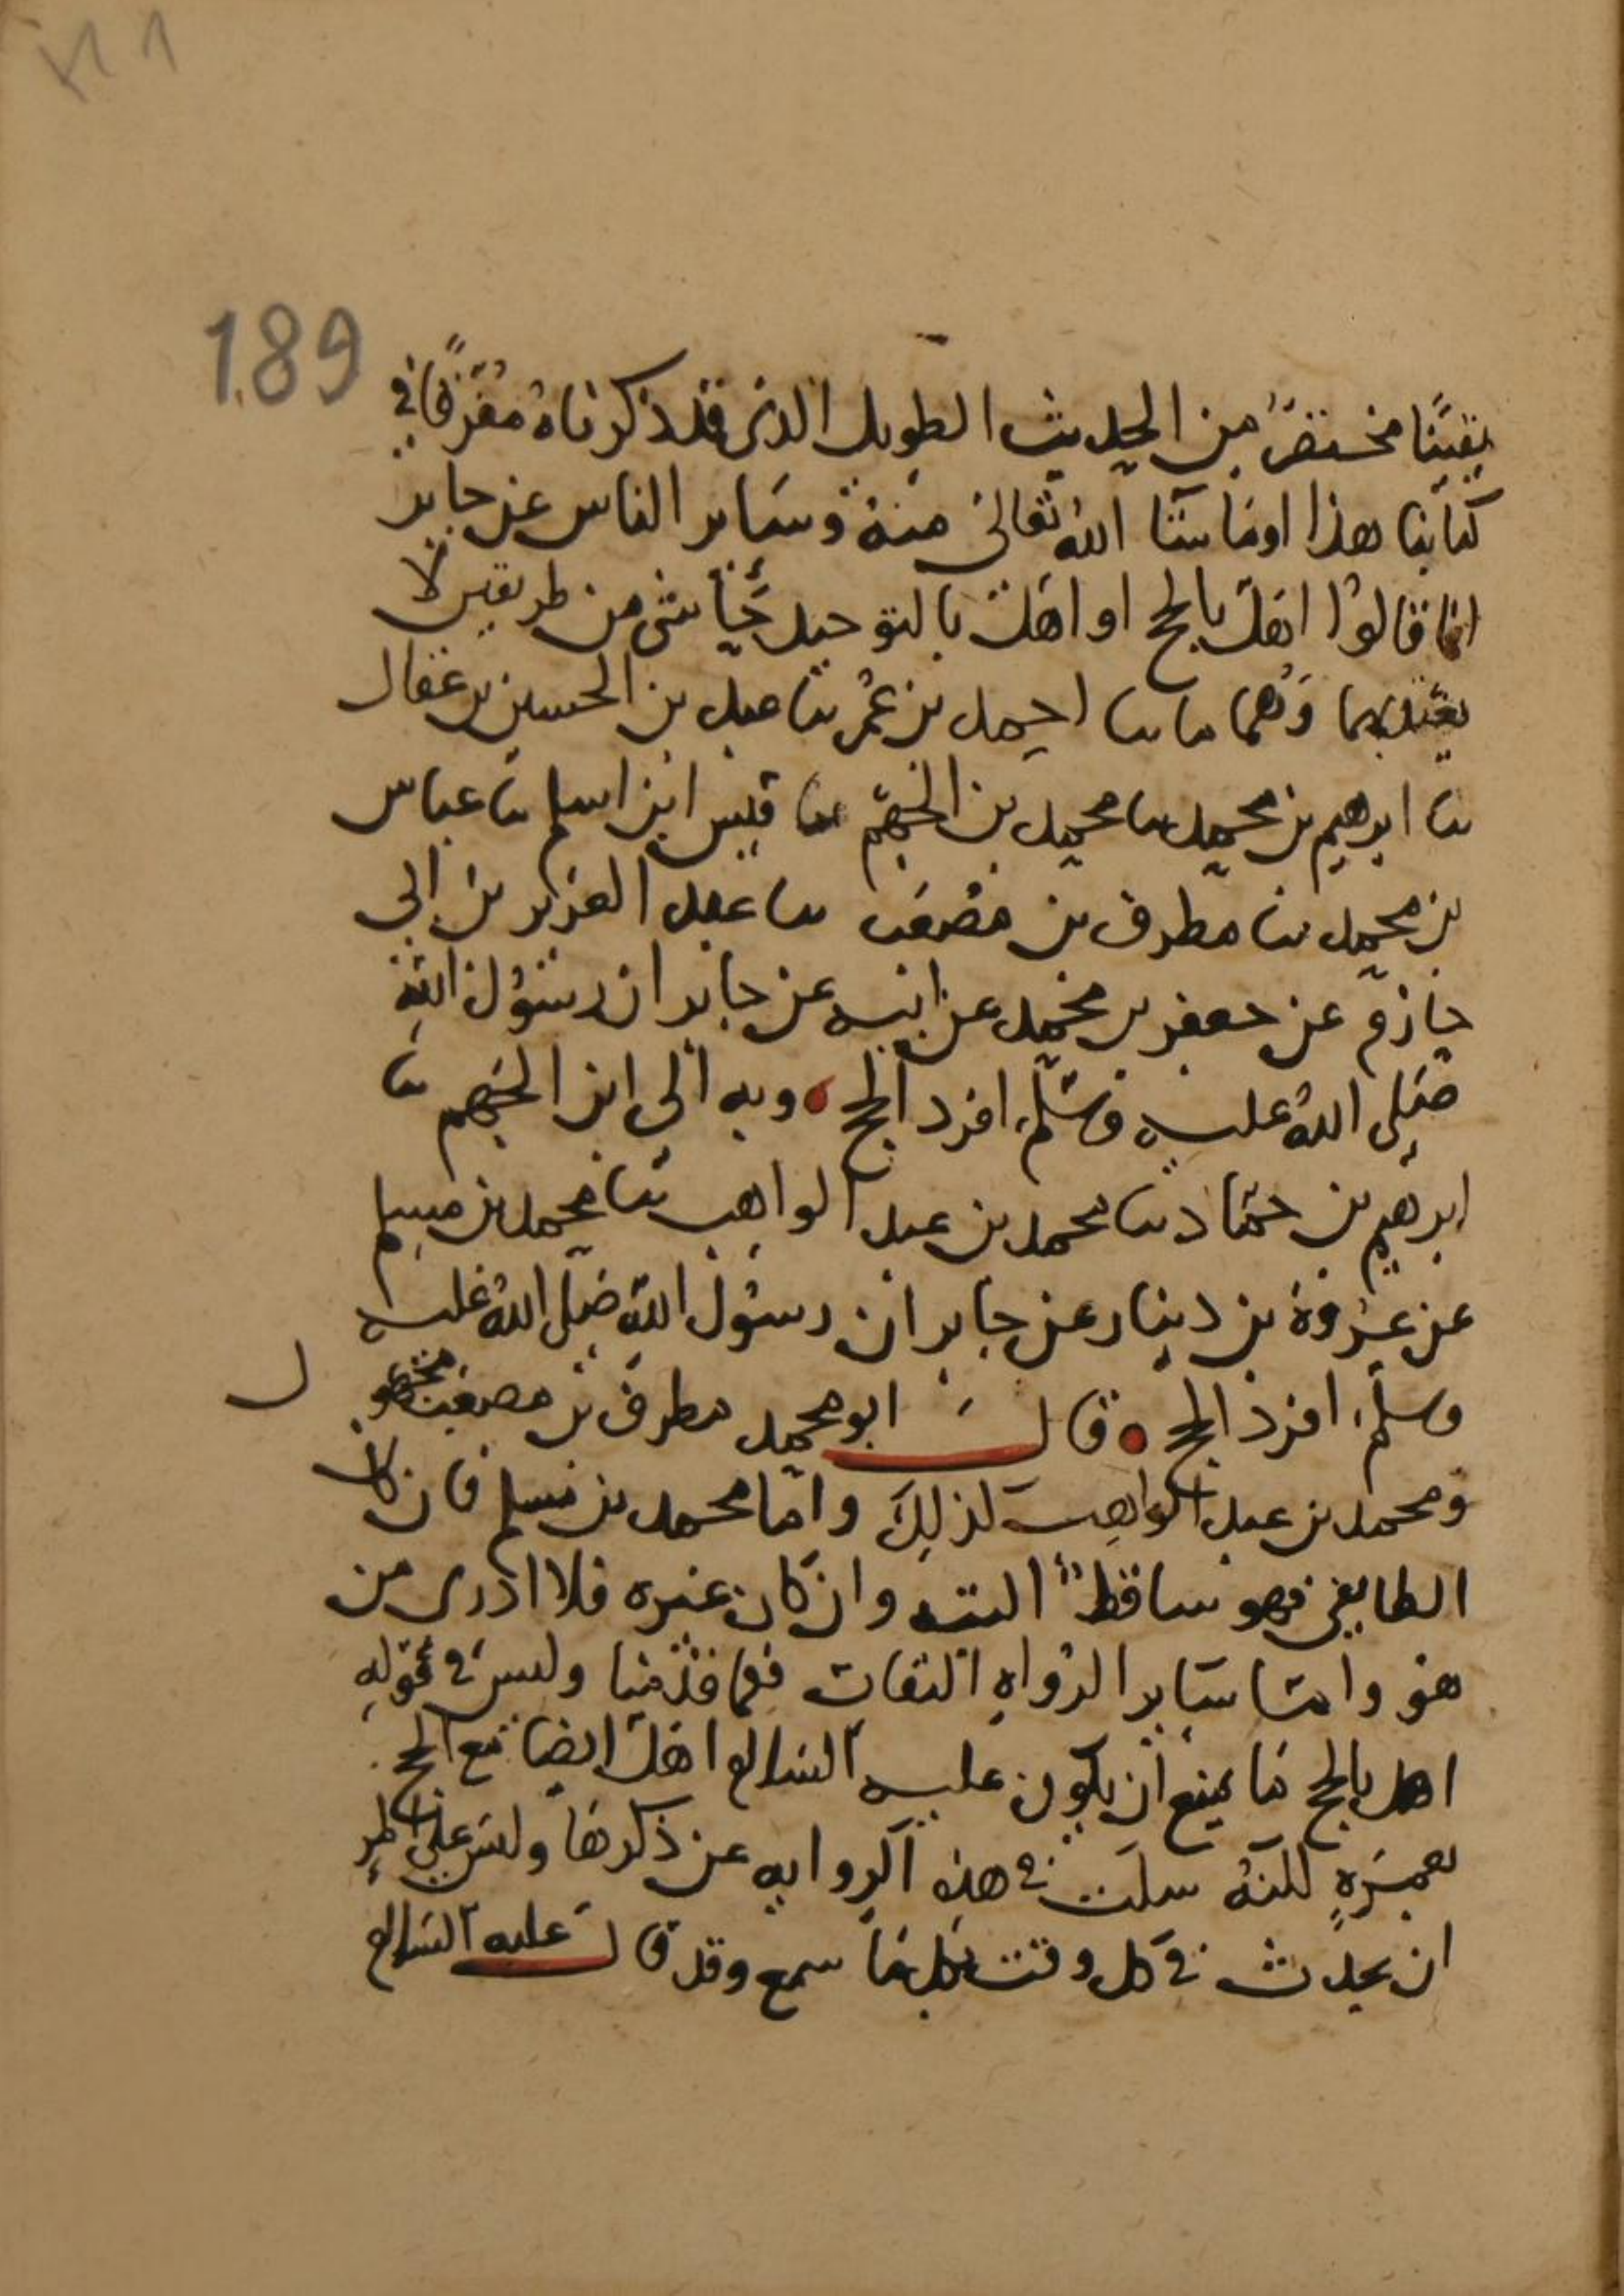 189
يقينًا مختصرٌ من الحديث الطويل الذي قد ذكرناه مفرقًا في
كتابنا هذا او ما شا الله تعالى منه وساير الناس عن جابر
انما قالوا اهل بالحج او اهل بالتوحيد حاشى من طريقين لا
يعتد بهما وهما ما نا احمد بن عمر نا عبد بن الحسين بن عقال
نا ابرهيم بن محمد نا محمد بن الجهم نا قيس ابن اسلم نا عباس
بن محمد نا مطرف بن مصعب نا عبد العزيز بن ابي
حازم عن جعفر بن محمد عن ابيه عن جابر ان رسول الله
صلى الله عليه وسلم افرد الحج وبه الى ابن الجهم نا
ابرهيم بن حماد نا محمد بن عبد الواهب نا محمد بن مسلم
عن عروة بن دينار عن جابر ان رسول الله صلى الله عليه
وسلم افرد الحج قال ابو محمد مطرف بن مصعب مجهول
ومحمد بن عبد الواهب كذلك واما محمد بن مسلم فان كان
الطايفي فهو ساقط البته وان كان غيره فلا ادرى من
هو واما ساير الرواه الثقات فكما قدمنا وليس في قوله
اهل بالحج ما يمنع ان يكون عليه السلام اهل ايضا مع الحج
بعمرة لكنه سكت في هذه الروايه عن ذكرها وليس على
ان يحدث في كل وقت بكل ما سمع وقد قال عليه السلام